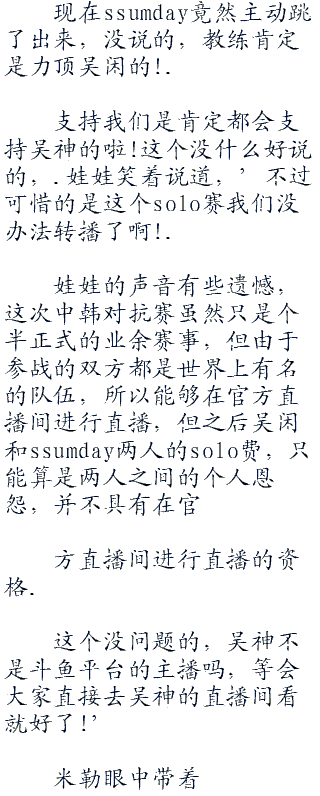 现在ssumday竟然主动跳
了出来，没说的，教练肯定
是力顶吴闲的!.
支持我们是肯定都会支
持吴神的啦!这个没什么好说
的，.娃娃笑着说道，’不过
可惜的是这个solo赛我们没
办法转播了啊!.
娃娃的声音有些遗憾，
这次中韩对抗赛虽然只是个
半正式的业余赛事，但由于
参战的双方都是世界上有名
的队伍，所以能够在官方直
播间进行直播，但之后吴闲
和ssumday两人的solo费，只
能算是两人之间的个人恩
怨，并不具有在官
方直播间进行直播的资
格.
这个没问题的，吴神不
是斗鱼平台的主播吗，等会
大家直接去吴神的直播间看
就好了!’
米勒眼中带着